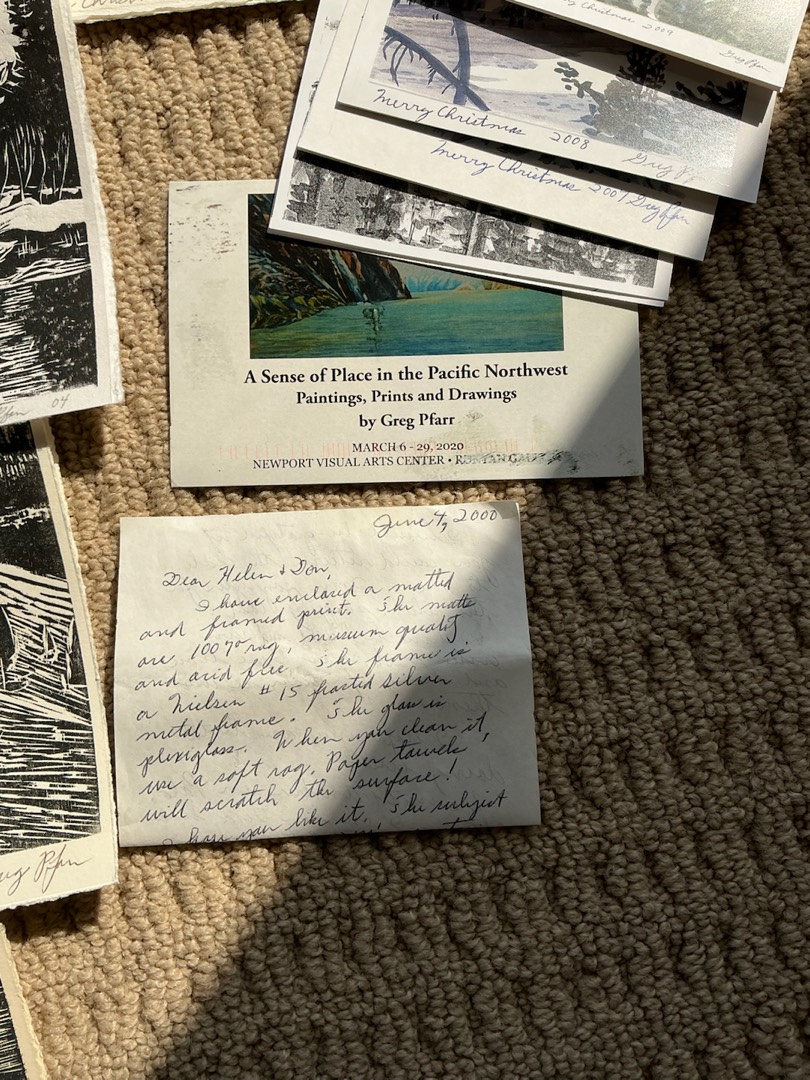 Merry Christmas 2009
Greg Pfarr
Merry Christmas 2008 Greg
Merry Christmas 2007 Greg Pfarr
Pfarr 04
A Sense of Place in the Pacific Northwest
Paintings, Prints and Drawings
by Greg Pfarr
MARCH 6 - 29, 2020
NEWPORT VISUAL ARTS CENTER •
June 4, 2000
Dear Helen & Don,
I have enclosed a matted
and framed print. The matts
are 100% rag, museum quality
and acid free. The frame is
a Nielsen #15 frosted silver
metal frame. The glass is
plexiglass. When you clean it,
use a soft rag. Paper towels
will scratch the surface!
I hope you like it. The subject
Pfarr